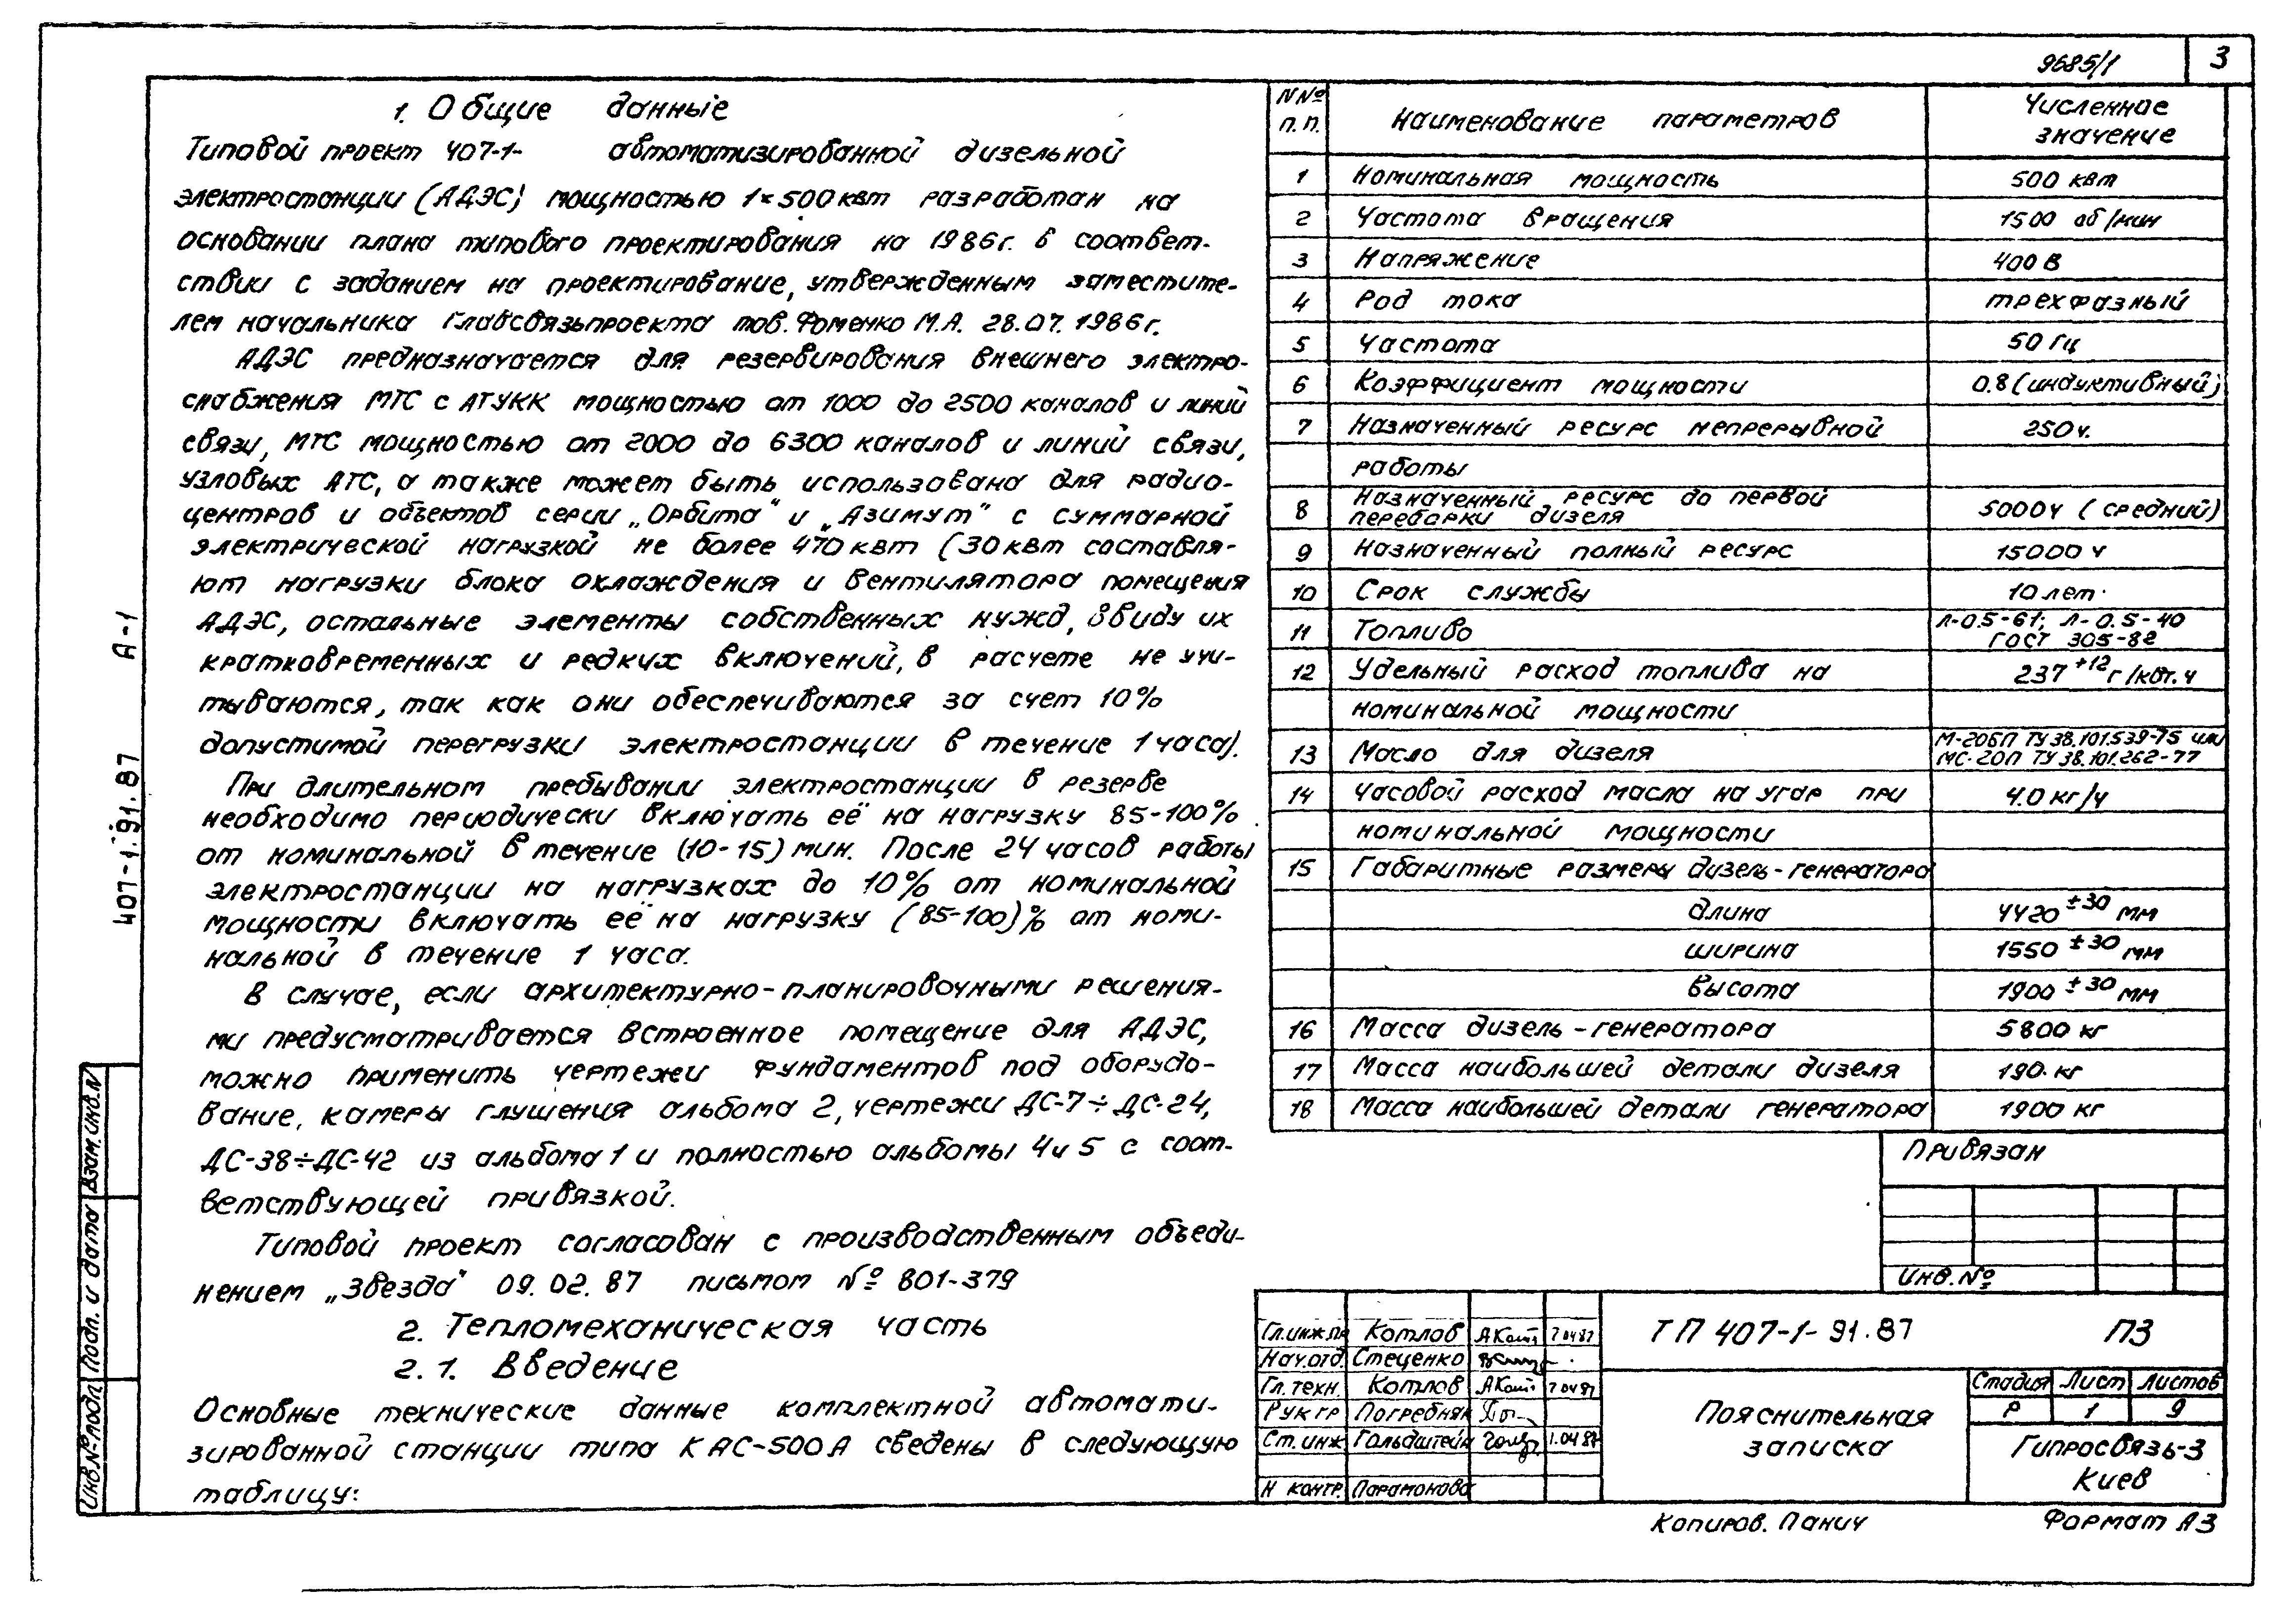 9685/1
3
1. Общие данные
Типовой проект 407-1- автоматизированной дизельной
электростанции (АДЭС) мощностью 1×500 квт разработан на
основании плана типового проектирования на 1986г. в соответ-
ствии с заданием на проектирование, утвержденным заместите-
лем начальника Главсвязьпроекта тов. Фоменко М.А. 28.07.1986г.
АДЭС предназначается для резервирования внешнего электро-
снабжения МТС с АТУКК мощностью от 1000 до 2500 каналов и линий
связи, МТС мощностью от 2000 до 6300 каналов и линий связи,
узловых АТС, а также может быть использована для радио-
центров и объектов серии „Орбита" и „Азимут" с суммарной
электрической нагрузкой не более 470 квт (30 квт составля-
ют нагрузки блока охлаждения и вентилятора помещения
АДЭС, остальные элементы собственных нужд, ввиду их
кратковременных и редких включений, в расчете не учи-
тываются, так как они обеспечиваются за счет 10%
допустимой перегрузки электростанции в течение 1 часа).
При длительном пребывании электростанции в резерве
необходимо периодически включать её на нагрузку 85-100%
от номинальной в течение (10-15) мин. После 24 часов работы
электростанции на нагрузках до 10% от номинальной
мощности включать её на нагрузку (85-100)% от номи-
нальной в течение 1 часа.
В случае, если архитектурно-планировочными решения-
ми предусматривается встроенное помещение для АДЭС,
можно применить чертежи фундаментов под оборудо-
вание, камеры глушения альбома 2, чертежи ДС-7÷ДС-24,
ДС-38÷ДС-42 из альбома 1 и полностью альбомы 4 и 5 с соот-
ветствующей привязкой.
Типовой проект согласован с производственным объеди-
нением „Звезда" 09.02.87 письмом № 801-379
2. Тепломеханическая часть
2.1. Введение
Основные технические данные комплектной автомати-
зированной станции типа КАС-500А сведены в следующую
таблицу:
N№ п.п. Наименование параметров Численное значение
1 Номинальная мощность 500 квт
2 Частота вращения 1500 об/мин
3 Напряжение 400 В
4 Род тока трехфазный
5 Частота 50 Гц
6 Коэффициент мощности 0.8 (индуктивный)
7 Назначенный ресурс непрерывной 250 ч.
работы
8 Назначенный ресурс до первой переборки дизеля 5000 ч (средний)
9 Назначенный полный ресурс 15000 ч
10 Срок службы 10 лет.
11 Топливо Л-0.5-61; Л-0.5-40 ГОСТ 305-82
12 Удельный расход топлива на 237 +12 г/квт.ч
номинальной мощности
13 Масло для дизеля М-20БП ТУ 38.101.539-75 или МС-20П ТУ 38.101.262-77
14 Часовой расход масла на угар при 4.0 кг/ч
номинальной мощности
15 Габаритные размеры дизель-генератора
длина 4420 ±30 мм
ширина 1550 ±30 мм
высота 1900 ±30 мм
16 Масса дизель-генератора 5800 кг
17 Масса наибольшей детали дизеля 190. кг
18 Масса наибольшей детали генератора 1900 кг
Привязан
Инв. №
Гл.инж.пр Котлов АКот 7.04.87
Нач.отд. Стеценко
Гл. техн. Котлов АКот 7.04.87
Рук гр Погребняк
Ст. инж Гольдштейн 1.04.87
Н контр. Парамонова
ТП 407-1-91.87 ПЗ
Пояснительная
записка
Стадия Лист Листов
Р 1 9
Гипросвязь-3
Киев
Копиров. Панич Формат А3
407-1.91.87 А-1
Взам. инв. N
Подп. и дата
Инв. № подл